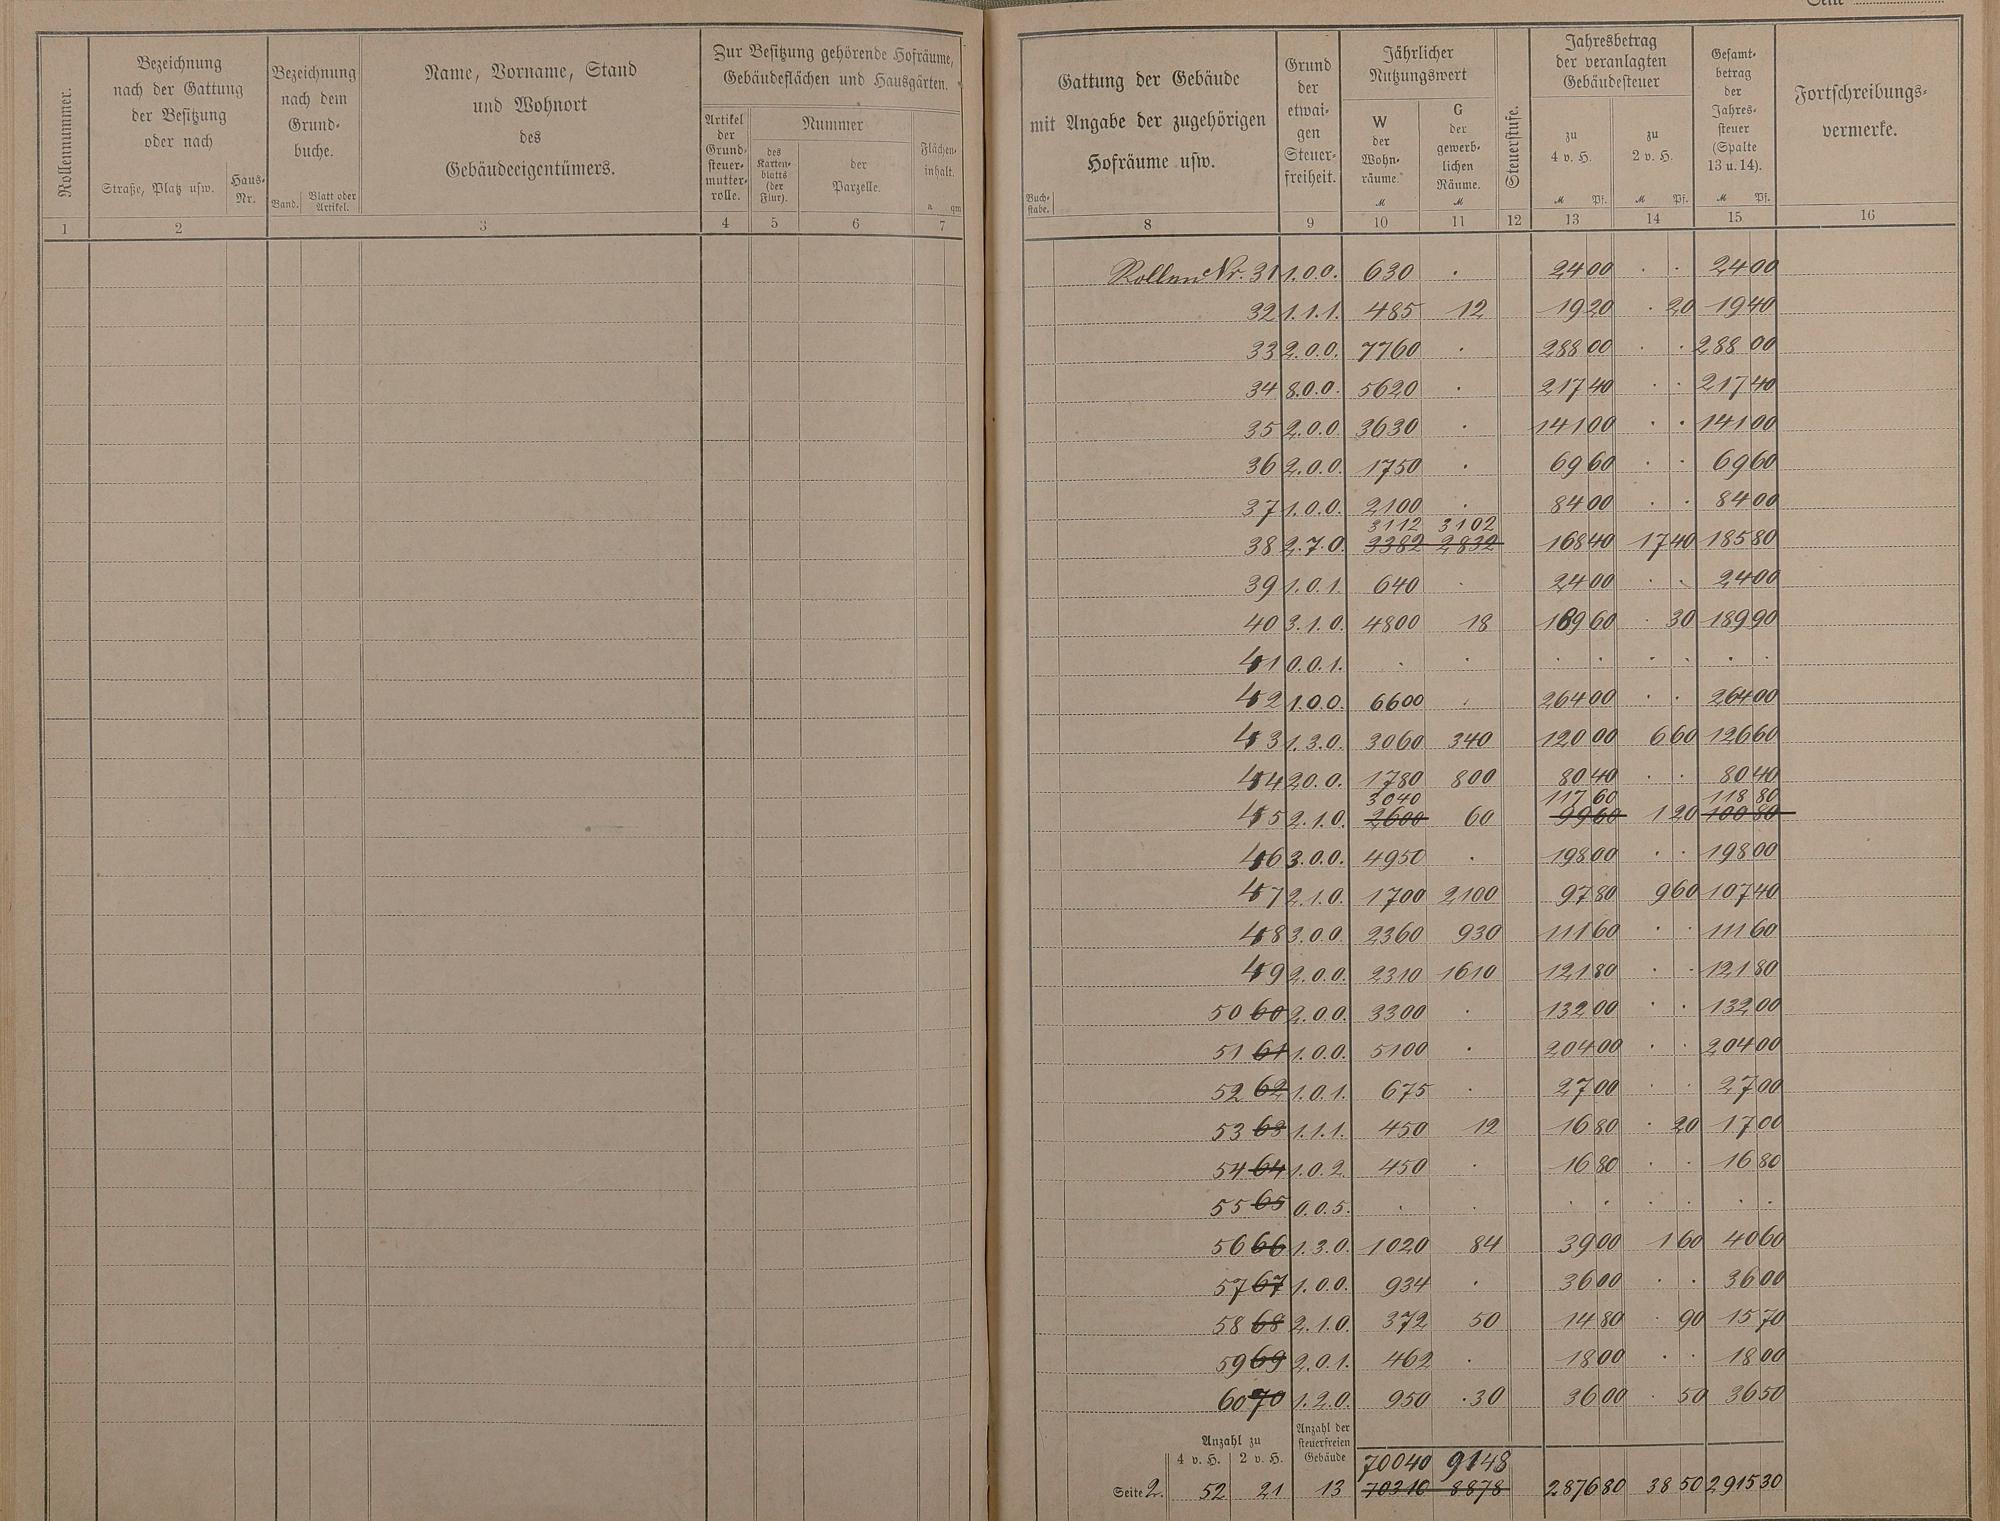 Seite
Rollennummer.
Bezeichnung
nach der Gattung
der Besitzung
oder nach
Straße, Platz usw.
Haus-
Nr.
Bezeichnung
nach dem
Grund-
buche.
Band.
Blatt oder
Artikel.
Name, Vorname, Stand
und Wohnort
des
Gebäudeeigentümers.
Zur Besitzung gehörende Hofräume,
Gebäudeflächen und Hausgärten.
Artikel
der
Grund-
steuer-
mutter-
rolle.
Nummer
des
Karten-
blatts
(der
Flur).
der
Parzelle.
Flächen-
inhalt.
a qm
1 2 3 4 5 6 7
Gattung der Gebäude
mit Angabe der zugehörigen
Hofräume usw.
Buch-
stabe.
Grund
der
etwai-
gen
Steuer-
freiheit.
Jährlicher
Nutzungswert
W
der
Wohn-
räume.
M
G
der
gewerb-
lichen
Räume.
M
Steuerstufe.
Jahresbetrag
der veranlagten
Gebäudesteuer
zu
4 v. H.
M Pf.
zu
2 v. H.
M Pf.
Gesamt-
betrag
der
Jahres-
steuer
(Spalte
13 u. 14).
M Pf.
Fortschreibungs-
vermerke.
8 9 10 11 12 13 14 15 16
Rollen Nr. 31 1.0.0. 630 . 24 00 . . 24 00
32 1.1.1. 485 12 19 20 . 20 19 40
33 2.0.0. 7760 . 288 00 . . 288 00
34 8.0.0. 5620 . 217 40 . . 217 40
35 2.0.0 3630 . 141 00 . . 141 00
36 2.0.0. 1750 . 69 60 . . 69 60
37 1.0.0. 2100 . 84 00 . . 84 00
3112 3102
38 2.7.0. 3382 2832 168 40 17 40 185 80
39 1.0.1. 640 . 24 00 . . 24 00
40 3.1.0. 4800 18 189 60 . 30 189 90
41 0.0.1. . . . . . . . .
42 1.0.0. 6600 . 264 00 . . 264 00
43 1.3.0. 3060 340 120 00 6 60 126 60
44 2.0.0. 1780 800 80 40 . . 80 40
3040 117 60 118 80
45 2.1.0. 2600 60 99 60 1 20 100 80
46 3.0.0. 4950 . 198 00 . . 198 00
47 2.1.0. 1700 2100 97 80 9 60 107 40
48 3.0.0. 2360 930 111 60 . . 111 60
49 2.0.0. 2310 1610 121 80 . . 121 80
50 60 2.0.0. 3300 . 132 00 . . 132 00
51 61 1.0.0. 5100 . 204 00 . . 204 00
52 62 1.0.1. 675 . 27 00 . . 27 00
53 63 1.1.1. 450 12 16 80 . 20 17 00
54 64 1.0.2. 450 . 16 80 . . 16 80
55 65 0.0.5. . . . . . . . .
56 66 1.3.0. 1020 84 39 00 1 60 40 60
57 67 1.0.0. 934 . 36 00 . . 36 00
58 68 2.1.0. 372 50 14 80 . 90 15 70
59 69 2.0.1. 462 . 18 00 . . 18 00
60 70 1.2.0. 950 .30 36 00 . 50 36 50
Anzahl zu
4 v. H. 2 v. H.
Anzahl der
steuerfreien
Gebäude
70040 9148
Seite 2. 52 21 13 70310 8878 2876 80 38 50 2915 30